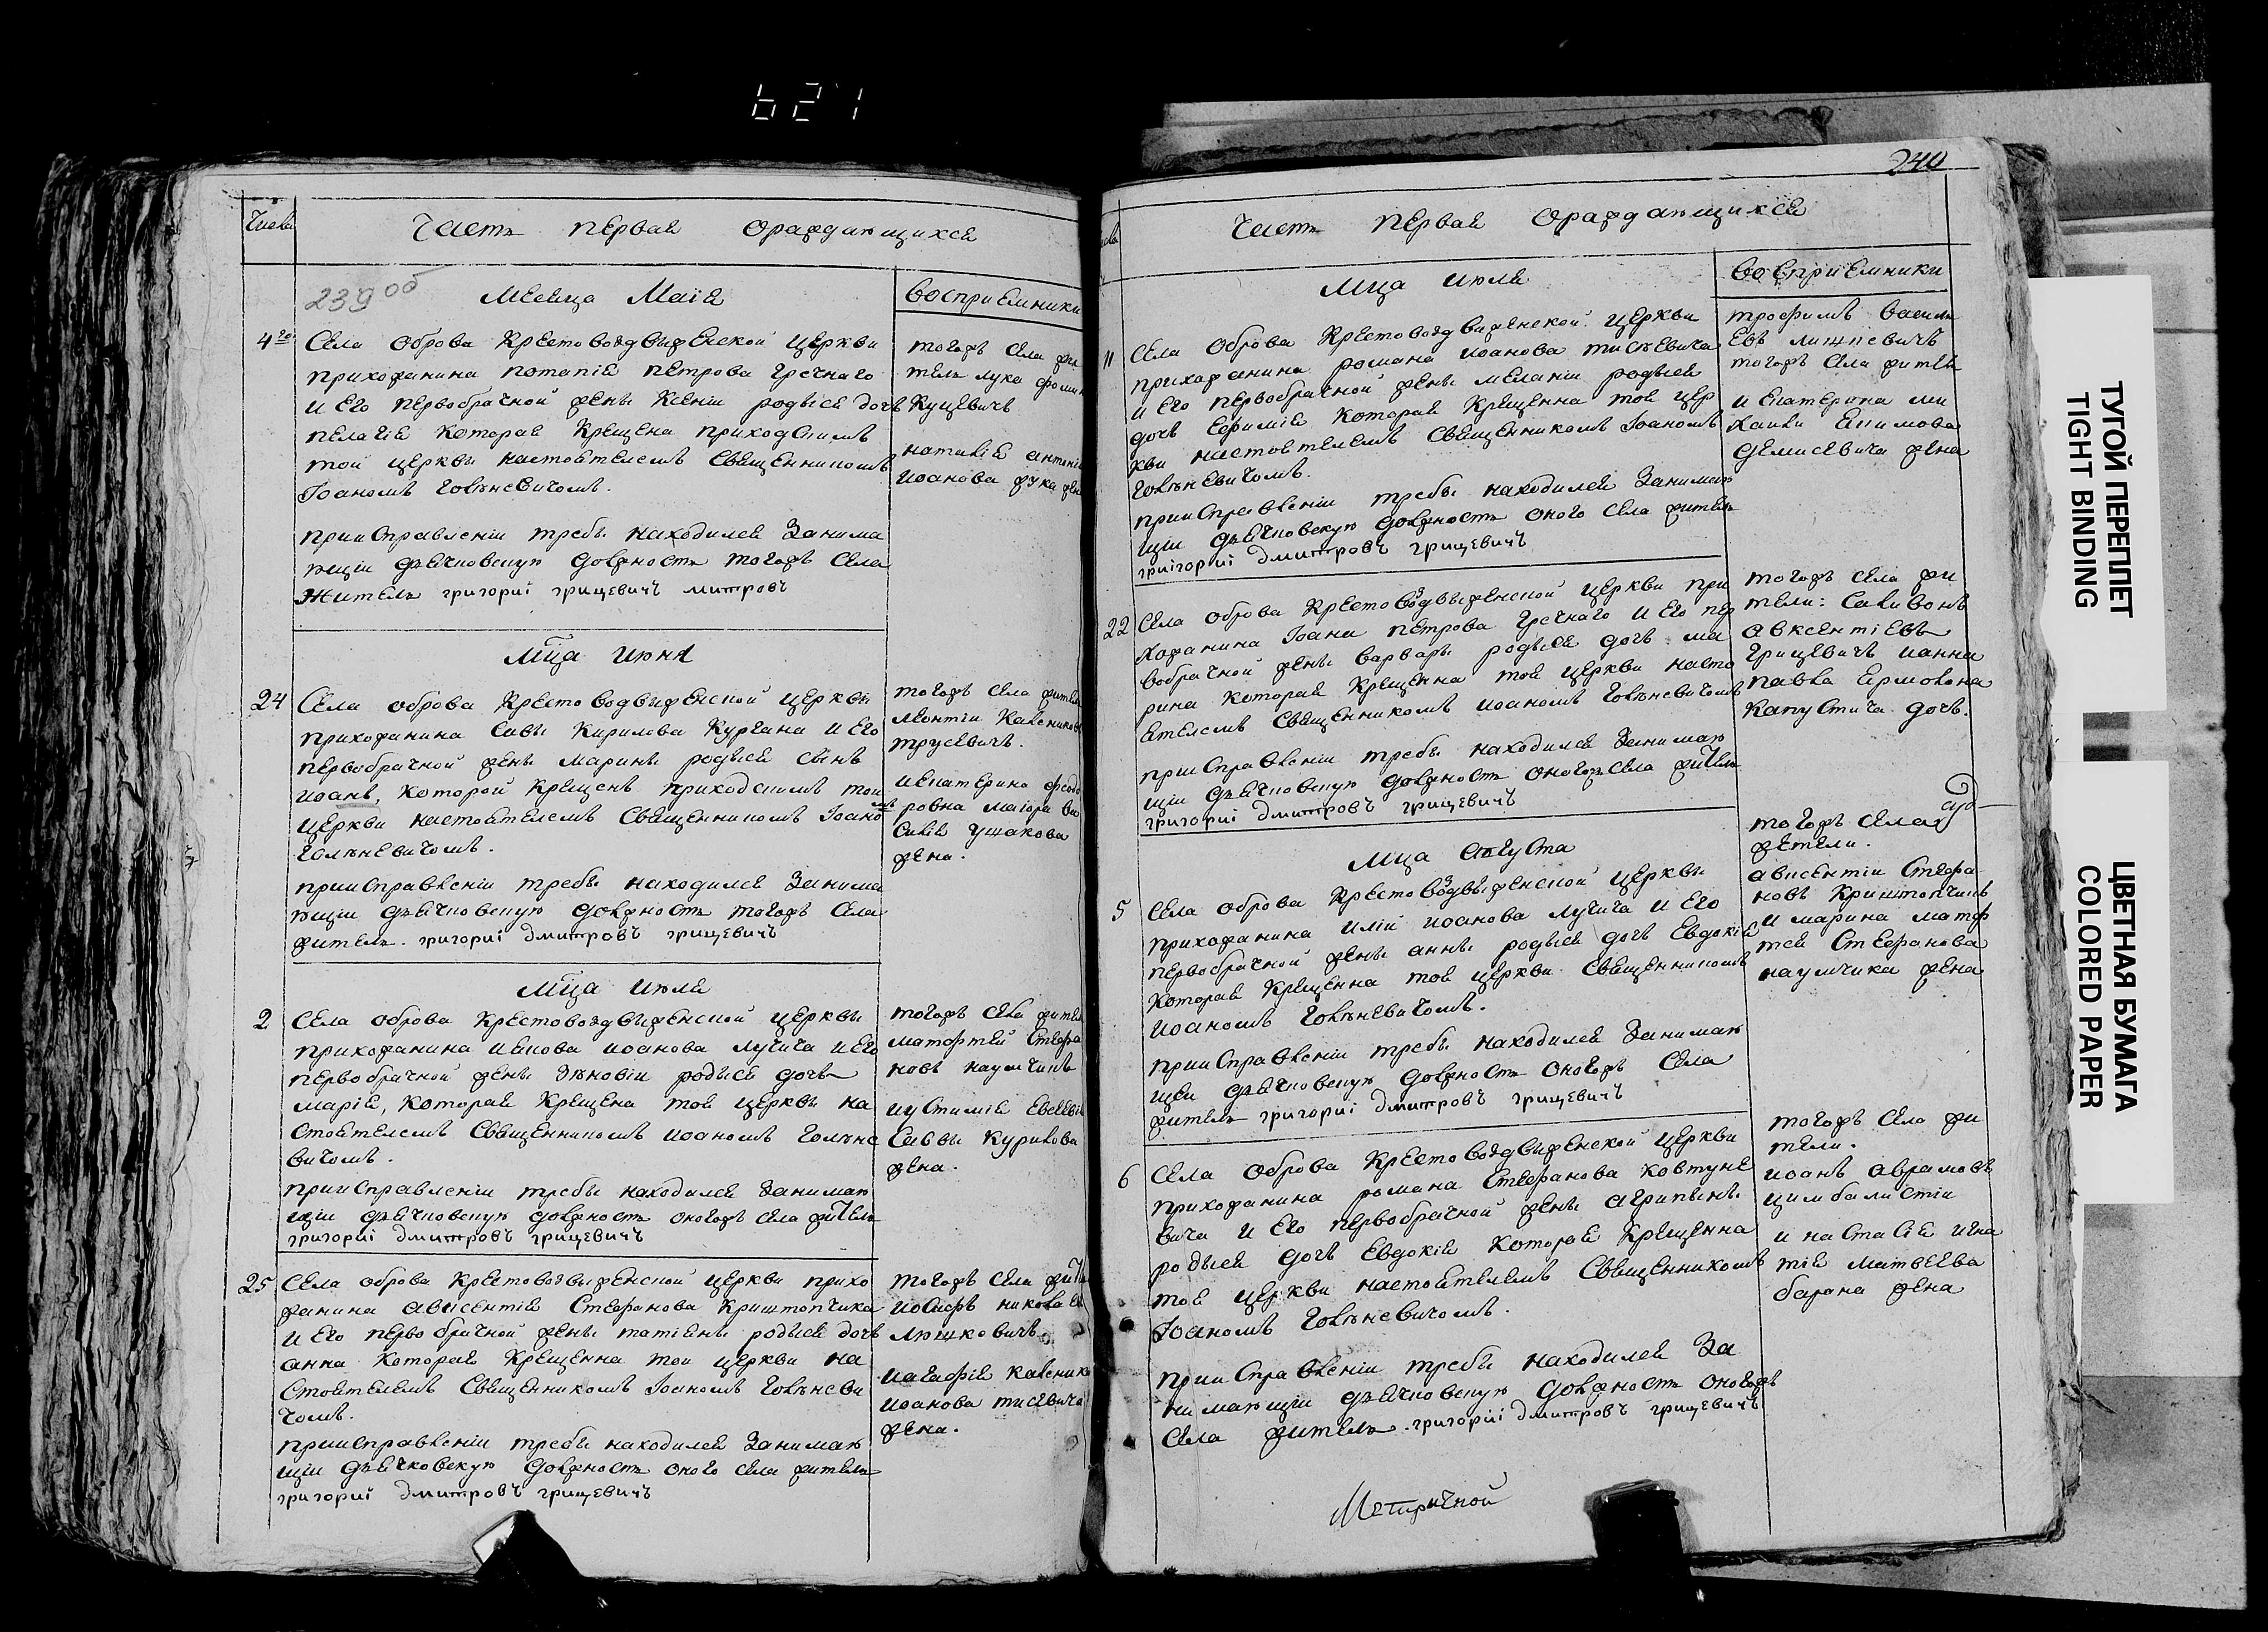 621
240
Числа
Часть первая ораждающихся
239 об
Месяца Маія
восприемники
4го
Села оброва Крестовоздвыженской церкви
прихожанина потапія петрова Гречнаго
и Его первобрачной жены Ксеніи родыся дочъ
пелагія Которая Крещена приходскимъ
той церквы настоятелемъ Священникомъ
Іоаномъ Голѣневичомъ.
при исправленіи требы находился Занима
ющіи дьячковскую должность тогожъ Села
Житель григориі грицевичъ митровъ
тогожъ Села жи
тель лука фомин
Куцевичъ
наталія антоні
иоанова жука
Мца июня
24
Села оброва Кресто водвыженской церкви
прихожанина Савы Кирилова Кургана и Его
первобрачной жены марины родыся сынъ
иоанъ, Которой Крещенъ приходскимъ той
церкви настоятелемъ Священникомъ Іоано
мъ
Голѣневичомъ.
при исправленіи требы находился Занима
ющіи дьячковскую должность тогожъ Села
житель. григориі дмитровъ грицевичъ
тогожъ Села
леонтіи
трусевичъ.
и Екатерина феодо
ровна маіора ва
силія ушакова
жена.
Мца июля
2
Села оброва Крестовоздвыженской церквы
прихожанина иакова иоанова лучича и Его
первобрачной жены Зѣновіи родыся дочъ
марія, Которая Крещена той церквы на
стоятелемъ Священникомъ иоаномъ Голѣне
вичомъ.
при исправленіи требы находился Занимаю
щіи дьячковскую должность оногожъ села житель
григориі дмитровъ грицевичъ
тогожъ Села
матофтей Стефа
новъ наумчикъ
иустимія
Саввы Курилова
жена.
25
Села оброва Крестовозвыженской церкви прихо
жанина авксентія Стефанова Криштопчика
и Его перво брачной жены татіяны родыся дочъ
анна Которая Крещенна той церкви на
Стоятелемъ Священникомъ Іоаномъ Голѣневи
чомъ.
при исправленіи требы находился Занимаю
щіи дьячковскую должность оного села житель
григориі дмитровъ грицевичъ
тогожъ Села
иосифъ никола
люшковичъ
иагафія
иоанова тисевича
жена.
Часть первая ораждающихся
Мца июля
Восприемники
11
Села оброва Крестовоздвиженской церкви
прихожанина романа иоанова тисѣевича
и Его первобрачной жены меланіи родыся
дочъ Ефимія Которая Крещенна той цер
кви настоятелемъ Священникомъ Іоаномъ
Голѣневичомъ.
при исправленіи требы находился Занимаю
щіи дьячковскую должность оного села житель
григориі дмитровъ грицевичъ
трофимъ васили
Евъ
тогожъ Села житель
и Екатерина ми
хаила Екимова
демисевича жена
22
Села оброва Крестовоздвыженской церкви при
хожанина Іоана петрова Гречнаго и Его пер
вобрачной жены варвары родыся дочъ ма
рина Которая Крещенна той церкви насто
ятелемъ Священникомъ иоаномъ Голѣневичомъ
при исправленіи требы находился Занимаю
щіи дьячковскую должность оногожъ Села житель
григориі дмитровъ грицевичъ
тогожъ села жи
тели: Саливонъ
авксентіевъ
Грицевичъ ианна
павла Ермолова
Капустича дочъ.
Мца августа
5
Села оброва Крестовоздвыженской церквы
прихожанина иліи иоанова лучича и Его
первобрачной жены анны родыся дочъ Евдокія
Которая Крещенна той церкви Священникомъ
иоаномъ Голѣневичомъ.
при исправленіи требы находился Занимаю
щеи дьячковскую должность оногожъ Села
житель григориі дмитровъ грицевичъ
тогожъ села
жетели.
авксентіи Стефа
новъ Криштопчикъ
и марина матф
тея Стефанова
наумчика жена
6
Села оброва Крестовоздвыженской церкви
прихожанина романа Стефанова ковтуне
вича и Его первобрачной жены агрипены
родыся дочъ Евдокія Которая Крещенна
той церкви настоятелемъ Священникомъ
Іоаномъ Голѣневичомъ.
при исправленіи требы находился За
нимающіи дьячковскую должность оногожъ
Села житель. григориі дмитровъ грицевичъ
тогожъ Села жи
тели.
иоанъ аврамовъ
и настасія игна
тія матвеева
барана жена
Метричной
ТУГОЙ ПЕРЕПЛЕТ
TIGHT BINDING
ЦВЕТНАЯ БУМАГА
COLORED PAPER